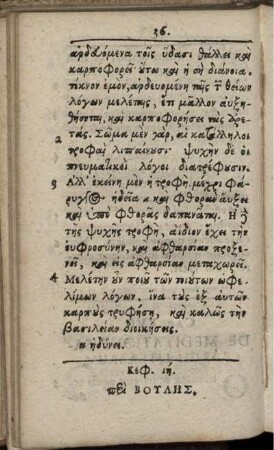 36.
ἀρδευόμενα τοῖς ὕδασι θάλλει καὶ
καρποφορεῖ· οὕτω καὶ ἡ σὴ διάνοια,
τέκνον ἐμὸν, ἀρδευομένη τῆς τῶν θείων
λόγων μελέτης, ἔτι μᾶλλον αὐξη-
θήσεται, καὶ καρποφορήσει τὰς ἀρε-
2 τάς. Σῶμα μὲν γὰρ, αἱ κατάλληλοι
τροφαὶ λιπαίνουσι· ψυχὴν δὲ οἱ
πνευματικοὶ λόγοι διατρέφουσιν.
3 Ἀλλ' ἐκείνη μὲν ἡ τροφὴ, μέχρι φά-
ρυγγος ἡδεῖα καὶ φθορὰν αὔξει
καὶ ὑπὸ φθορᾶς δαπανᾶται. Ἡ δὲ
τῆς ψυχῆς τροφὴ, ἀΐδιον ἔχει τὴν
εὐφροσύνην, καὶ ἀφθαρσίαν προξε-
νεῖ, καὶ εἰς ἀφθαρσίαν μεταχωρεῖ.
4 Μελέτην οὖν ποιοῦ τῶν τοιούτων ὠφε-
λίμων λόγων, ἵνα τοὺς ἐξ αὐτῶν
καρποὺς τρυφήσῃ, καὶ καλῶς τὴν
βασιλείαν διοικήσεις.
ηδύνει.
Κεφ. ιή.
περὶ ΒΟΥΛΗΣ.